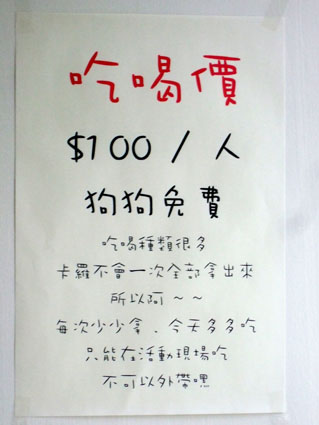 吃喝價
$100 / 人
狗狗免費
吃喝種類很多
卡羅不會一次全部拿出來
所以阿～～
每次少少拿、今天多多吃
只能在活動現場吃
不可以外帶嘿